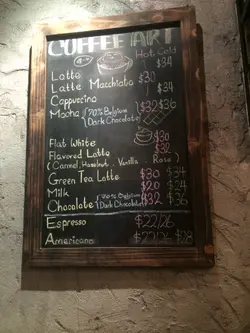 COFFEE ART
Hot Cold
Latte $34
Latte Macchiato $30
Cappuccino
Mocha (70% Belgium $32 $36
Dark Chocolate)
Flat White $30
Flavored Latte $32
(Caramel, Hazelnut, Vanilla Rose)
Green Tea Latte $30 $34
Milk $20 $24
Chocolate (70% Belgium $32 $36
Dark Chocolate)
Espresso $22/26
Americano $22/26 $28